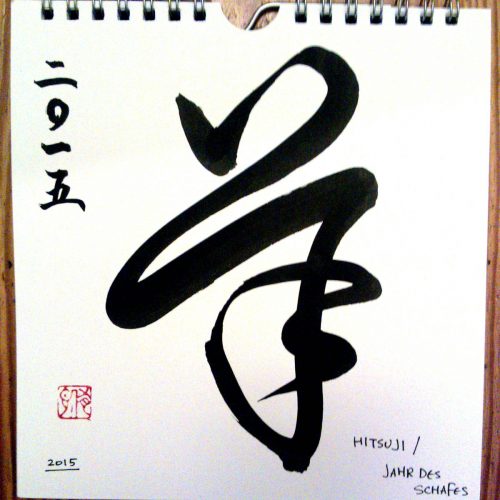 二〇一五
羊
2015
HITSUJI /
JAHR DES
SCHAFES